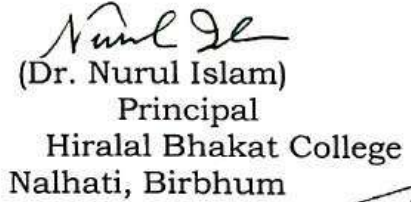 Nurul Isl
(Dr. Nurul Islam)
Principal
Hiralal Bhakat College
Nalhati, Birbhum